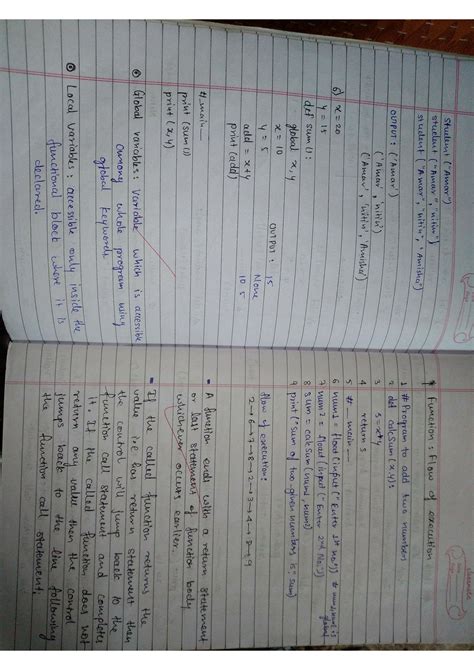 Student ("Amar")
student ("Amar", "nitin")
student ("Amar", "nitin", "Amisha")
OUTPUT: ('Amar')
('Amar', 'nitin')
('Amar', 'nitin', 'Amisha')
6) x = 20
y = 15
def sum1():
global x, y
x = 10
y = 5
add = x+y
print (add)
OUTPUT: 15
None
10 5
#_main_
print (sum1())
print (x, y)
Global variables: Variable which is accessible
among whole program using
global keywords.
Local Variables: accessible only inside the
functional block where it is
declared.
Function: Flow of execution
1 # Program to add two numbers
2 def calcSum(x,y):
3 s = x+y
4 return s
5 #_main_
6 num1 = float (input ("Enter 1st no"))
7 num2 = float (input ("Enter 2nd No"))
8 sum = calcSum (num1, num2)
9 print ("sum of two given numbers is", sum)
flow of execution:
2→6→7→8→2→3→4→8→9
A function ends with a return statement
or last statement of function body
whichever occurs earlier.
If the called function returns the
value i.e. has return statement then
the control will jump back to the
function call statement and complete
it. If the called function does not
return any value then the control
jumps back to the line following
the function call statement.